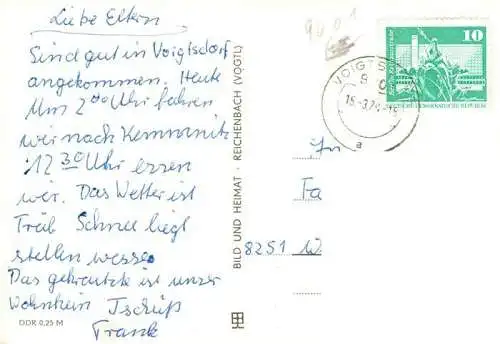 Liebe Eltern
Sind gut in Voigtsdorf
angekommen. Heute
Um 2 00 Uhr fahren
wir nach Kemnanitz
12 30 Uhr essen
wir. Das Wetter ist
Trüb Schnee liegt
stellen weisse
Das gekreutzte ist unser
Wohnheim Tschüß
Frank
DDR 0,25 M
BILD UND HEIMAT · REICHENBACH (VOGTL)
9001
VOIGTSD
15.-3.74.-15
a
10
DEUTSCHE DEMOKRATISCHE REPUBLIK
Fa
8251 W